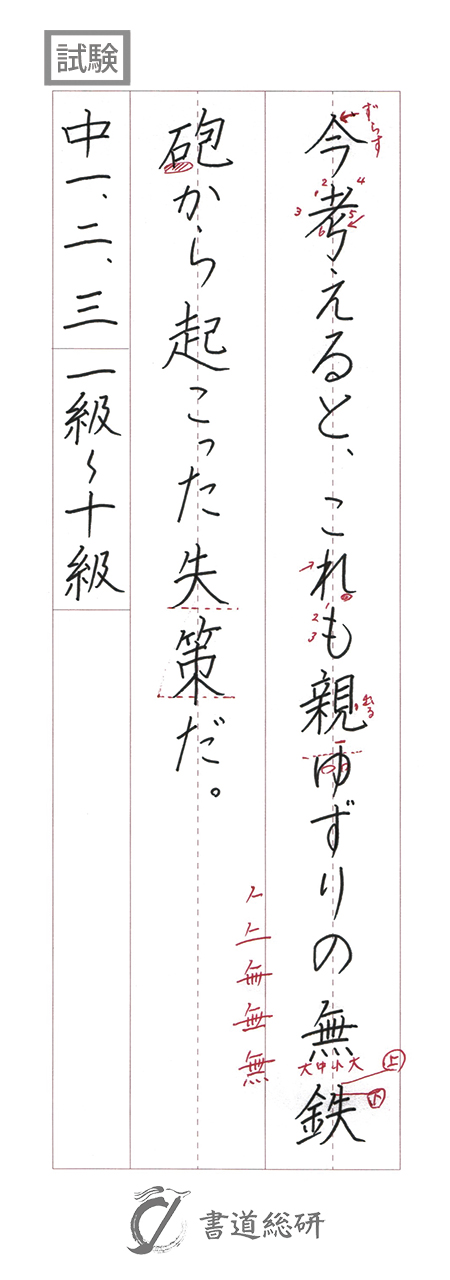 試験
今考えると、これも親ゆずりの無鉄
砲から起こった失策だ。
中一、二、三
一級〜十級
ずらす
1 2 3 4 5 6
1 2 3
出る
大中小大
上
下
無
書道総研